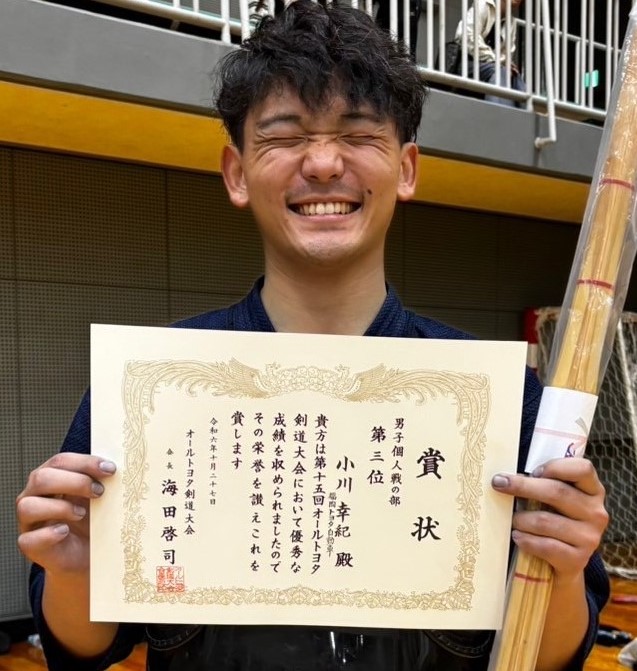 賞状
男子個人戦の部
第三位
福岡トヨタ自動車
小川幸紀殿
貴方は第十五回オールトヨタ
剣道大会において優秀な
成績を収められましたので
その栄誉を讃えこれを
賞します
令和六年十月二十七日
オールトヨタ剣道大会
会長 海田啓司